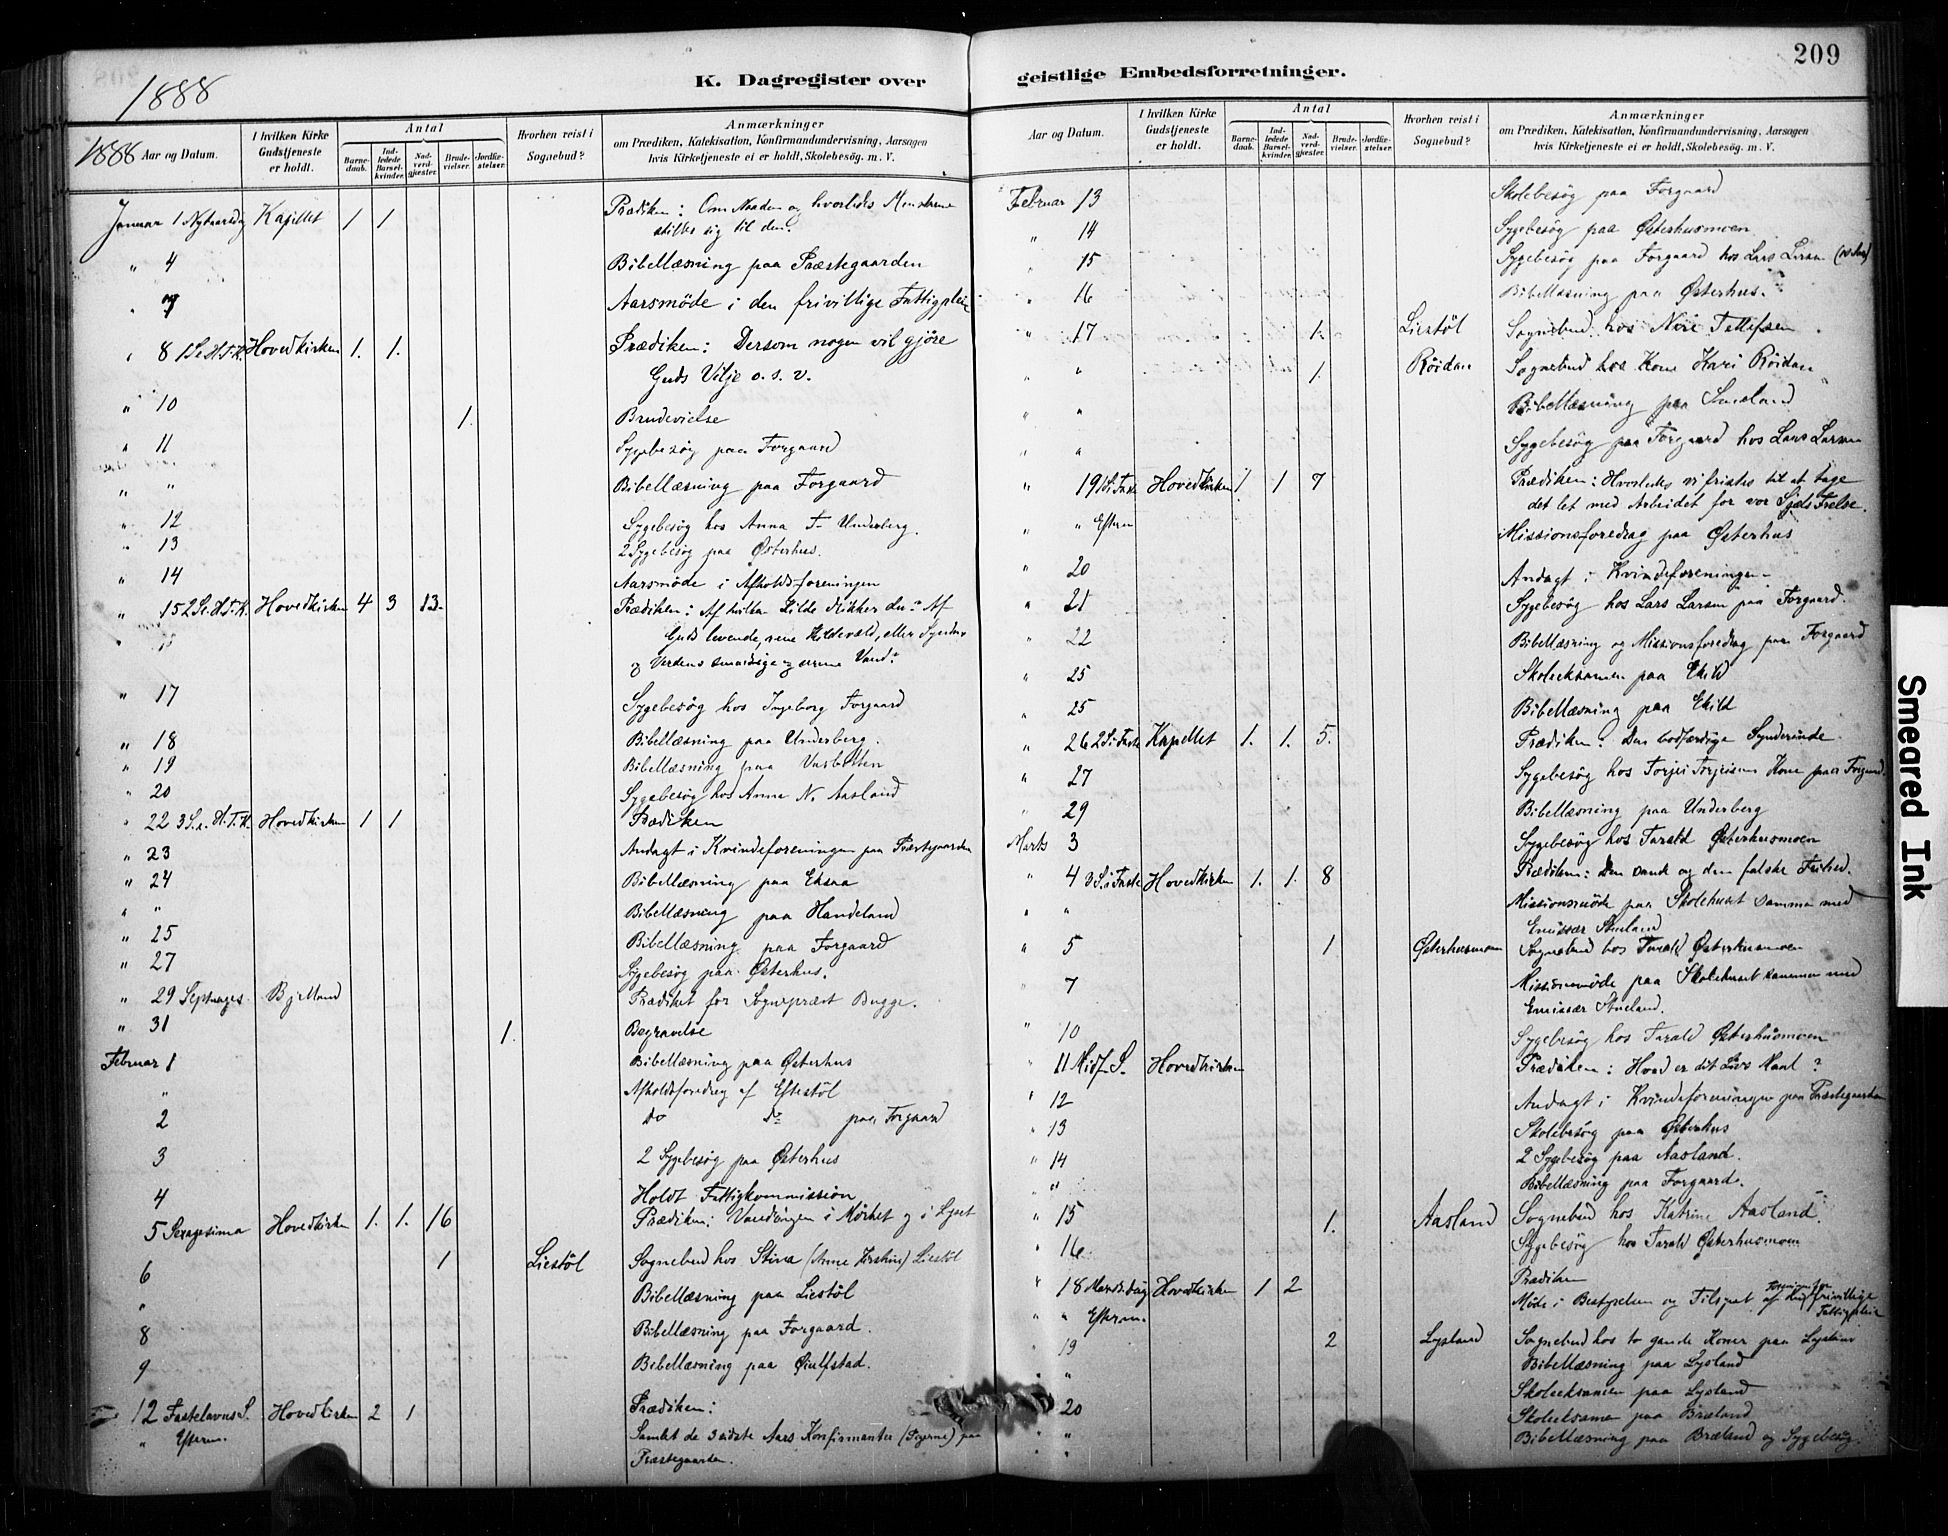 209
1888
K. Dagregister over geistlige Embedsforretninger.
1888 Aar og Datum.
I hvilken Kirke Gudstjeneste er holdt.
Antal
Barnedaab.
Indledede Barselkvinder.
Nadverdgjester.
Brudevielser.
Jordfæstelser.
Hvorhen reist i Sognebud?
Anmærkninger
om Prædiken, Katekisation, Konfirmandundervisning, Aarsagen
hvis Kirketjeneste ei er holdt, Skolebesög. m. V.
Januar 1 Nytaarsdag Kapellet 1 1 Prædiken: Om Naaden og hvorledes Menskene
stiller sig til den.
" 4 Bibellæsning paa Præstegaarden
" 7 Aarsmöde i den frivillige Fattigpleie
" 8 1 S. e. H. T. K. Hovedkirken 1. 1. Prædiken: Dersom nogen vil gjöre
Guds Vilje o. s. v.
" 10 1. Brudevielse
" 11 Sygebesög paa Forgaard
" " Bibellæsning paa Forgaard
" 12 Sygebesög hos Anna T. Underberg.
" 13 2 Sygebesög paa Østerhus.
" 14 Aarsmöde i Afholdsforeningen
" 15 2 S. e. H. T. K. Hovedkirken 4 3 13. Prædiken: Af hvilken Kilde drikker du? Af
Guds levende, rene Kildevæld, eller Syndens
og Verdens smudsige og urene Vand?
" 17 Sygebesög hos Ingeborg Forgaard
" 18 Bibellæsning paa Underberg.
" 19 Bibellæsning paa
" 20 Sygebesög hos Anne N. Aasland
" 22 3 S. e. H. T. K. Hovedkirken 1 1 Prædiken
" 23 Andagt i Kvindeforeningen paa Præstegaarden
" 24 Bibellæsning paa Eksaa
" " Bibellæsning paa Handeland
" 25 Bibellæsning paa Forgaard
" 27 Sygebesög paa Østerhus.
" 29 Septuages. Bjelland Prædiket for Sognepræst Bugge.
" 31 1. Begravelse
Februar 1 Bibellæsning paa Østerhus
" Afholdsforedrag af Eftestöl
2 do do paa Forgaard
3 2 Sygebesög paa Østerhus
4 Holdt Fattigkommission
5 Sexagesima Hovedkirken 1. 1. 16 Prædiken: Vandringen i Mörket og i Lyset
6 1 Liestöl Sognebud hos Stina (Anne Kirstine) Liestöl
" Bibellæsning paa Liestöl
8 Bibellæsning paa Forgaard.
9 Bibellæsning paa
12 Fastelavns S. Hovedkirken 2 1 Prædiken:
" Efterm. Samlet de sidste Aars Konfirmanter (Pigerne) paa
Præstegaarden.
Aar og Datum.
I hvilken Kirke Gudstjeneste er holdt.
Antal
Barnedaab.
Indledede Barselkvinder.
Nadverdgjester.
Brudevielser.
Jordfæstelser.
Hvorhen reist i Sognebud?
Anmærkninger
om Prædiken, Katekisation, Konfirmandundervisning, Aarsagen
hvis Kirketjeneste ei er holdt, Skolebesög. m. V.
Februar 13 Skolebesög paa Forgaard
" 14 Sygebesög paa Østerhusmoen
" 15 Sygebesög paa Forgaard hos Lars Larsen
" 16 Bibellæsning paa Østerhus.
" 17 1. Liestöl Sognebud hos Tellefsen
" " 1. Röisdan Sognebud hos Kone Kari Röisdan
" " Bibellæsning paa
" " Sygebesög paa Forgaard hos Lars Larsen
" 19 1 S. i Faste Hovedkirken 1 1 7 Prædiken: Hvorledes vi fristes til at tage
det let med Arbeidet for vor Sjæls Frelse.
" " Efterm. Missionsforedrag paa Østerhus
" 20 Andagt i Kvindeforeningen
" 21 Sygebesög hos Lars Larsen paa Forgaard.
" 22 Bibellæsning og Missionsforedrag paa Forgaard
" 25 Skoleeksamen paa Ekild
" 25 Bibellæsning paa Ekild
" 26 2 S. i Faste Kapellet 1. 1. 5. Prædiken: Den bodfærdige Synderinde.
" 27 Sygebesög hos Torjei Torjeisens Kone paa Forgaard.
" 29 Bibellæsning paa Underberg
Marts 3 Sygebesög hos Tarald Østerhusmoen
" 4 3 S. i Faste Hovedkirken 1. 1. 8 Prædiken: Den sande og den falske Frihed.
" " Missionsmöde paa Skolehuset sammen med
Emissær Stueland
" 5 1 Østerhusmoen Sognebud hos Tarald Østerhusmoen
" 7 Missionsmöde paa Skolehuset sammen med
Emissær Stueland.
" 10 Sygebesög hos Tarald Østerhusmoen
" 11 Midf. S. Hovedkirken Prædiken: Hvad er dit Livs Maal?
" 12 Andagt i Kvindeforeningen paa Præstegaarden
" 13 Skolebesög paa Østerhus
" 14 2 Sygebesög paa Aasland.
" " Bibellæsning paa Forgaard.
" 15 1. Aasland Sognebud hos Katrine Aasland.
" 16 Sygebesög hos Tarald Østerhusmoen
" 18 Mariæ dag Hovedkirken 1 2 Prædiken
" " Efterm. Möde i Bestyrelsen og Tilsynet af Foreningen for frivillige
Fattigpleie
" 19 2 Lysland Sognebud hos to gamle Koner paa Lysland
" " Bibellæsning paa Lysland
" " Skoleeksamen paa Lysland
" 20 Skoleeksamen paa Bræland
" " Bibellæsning paa Bræland og Sygebesög.
Smeared Ink